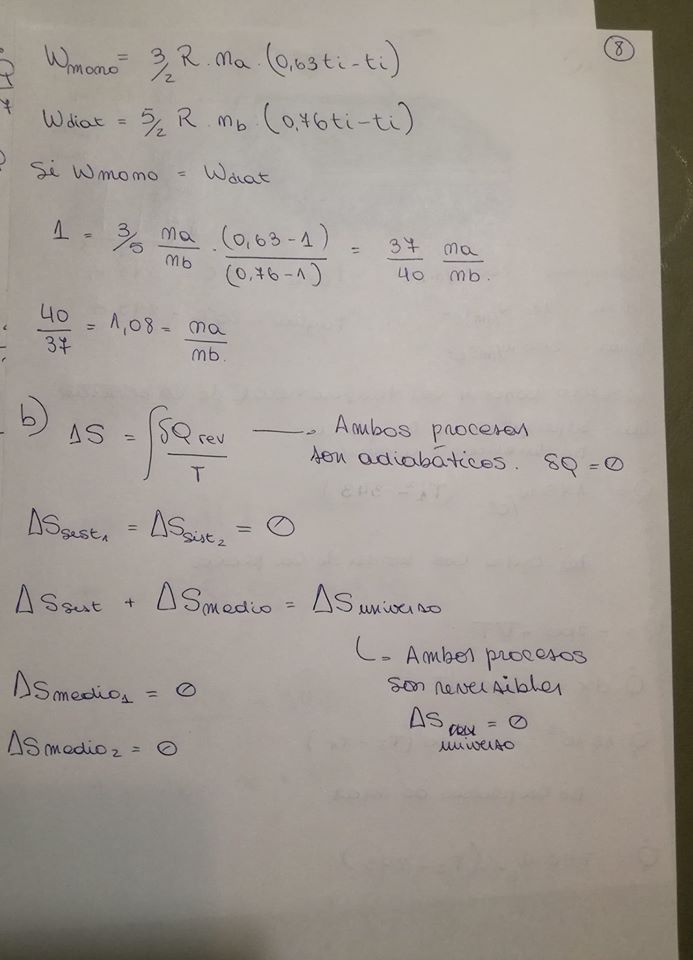 8
Wmono = 3/2 R · na · (0,63ti - ti)
Wdiat = 5/2 R · nb · (0,76ti - ti)
Si Wmono = Wdiat
1 = 3/5 na/nb · (0,63 - 1)/(0,76 - 1) = 37/40 na/nb.
40/37 = 1,08 = na/nb.
b) ΔS = ∫ δQrev/T → Ambos procesos
son adiabáticos. δQ = 0
ΔSsist1 = ΔSsist2 = 0
ΔSsist + ΔSmedio = ΔSuniverso
↳ Ambos procesos
son reversibles
ΔSmedio1 = 0
ΔS universo = 0
ΔSmedio2 = 0